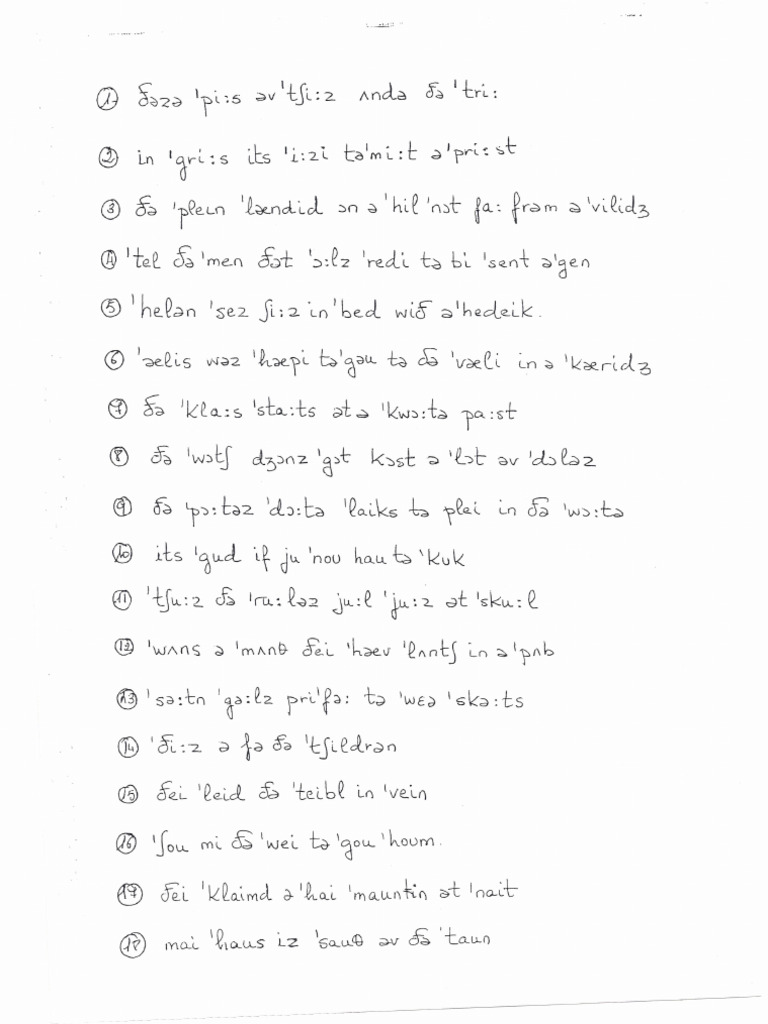 ① ðəzə 'pi:s əv 'tʃi:z ʌndə ðə 'tri:
② in 'gri:s its 'i:zi tə'mi:t ə'pri:st
③ ðə 'pleɩn 'lændid ɔn ə'hil 'nɔt fa: frəm ə'vilidʒ
④ 'tel ðə 'men ðət 'ɔ:lz 'redi tə bi 'sent ə'gen
⑤ 'helən 'sez ʃi:z in 'bed wið ə'hedeik.
⑥ 'ælis wəz 'hæpi tə'gəu tə ðə 'væli in ə 'kæridʒ
⑦ ðə 'kla:s 'sta:ts ət ə 'kwɔ:tə pa:st
⑧ ðə 'wɔtʃ dʒɔnz 'gɔt kɔst ə 'lɔt əv 'dɔləz
⑨ ðə 'pɔ:təz 'dɔ:tə 'laiks tə plei in ðə 'wɔ:tə
⑩ its 'gud if ju 'nou hau tə 'kuk
⑪ 'tʃu:z ðə 'ru:ləz ju:l 'ju:z ət 'sku:l
⑫ 'wʌns ə 'mʌnθ ðei 'hæv 'lʌntʃ in ə 'pʌb
⑬ 'sə:tn 'gə:lz pri'fə: tə 'wɛə 'skə:ts
⑭ 'ði:z ə fə ðə 'tʃildrən
⑮ ðei 'leid ðə 'teibl in 'vein
⑯ 'ʃou mi ðə 'wei tə 'gou 'houm.
⑰ ðei 'klaimd ə 'hai 'mauntin ət 'nait
⑱ mai 'haus iz 'sauθ əv ðə 'taun